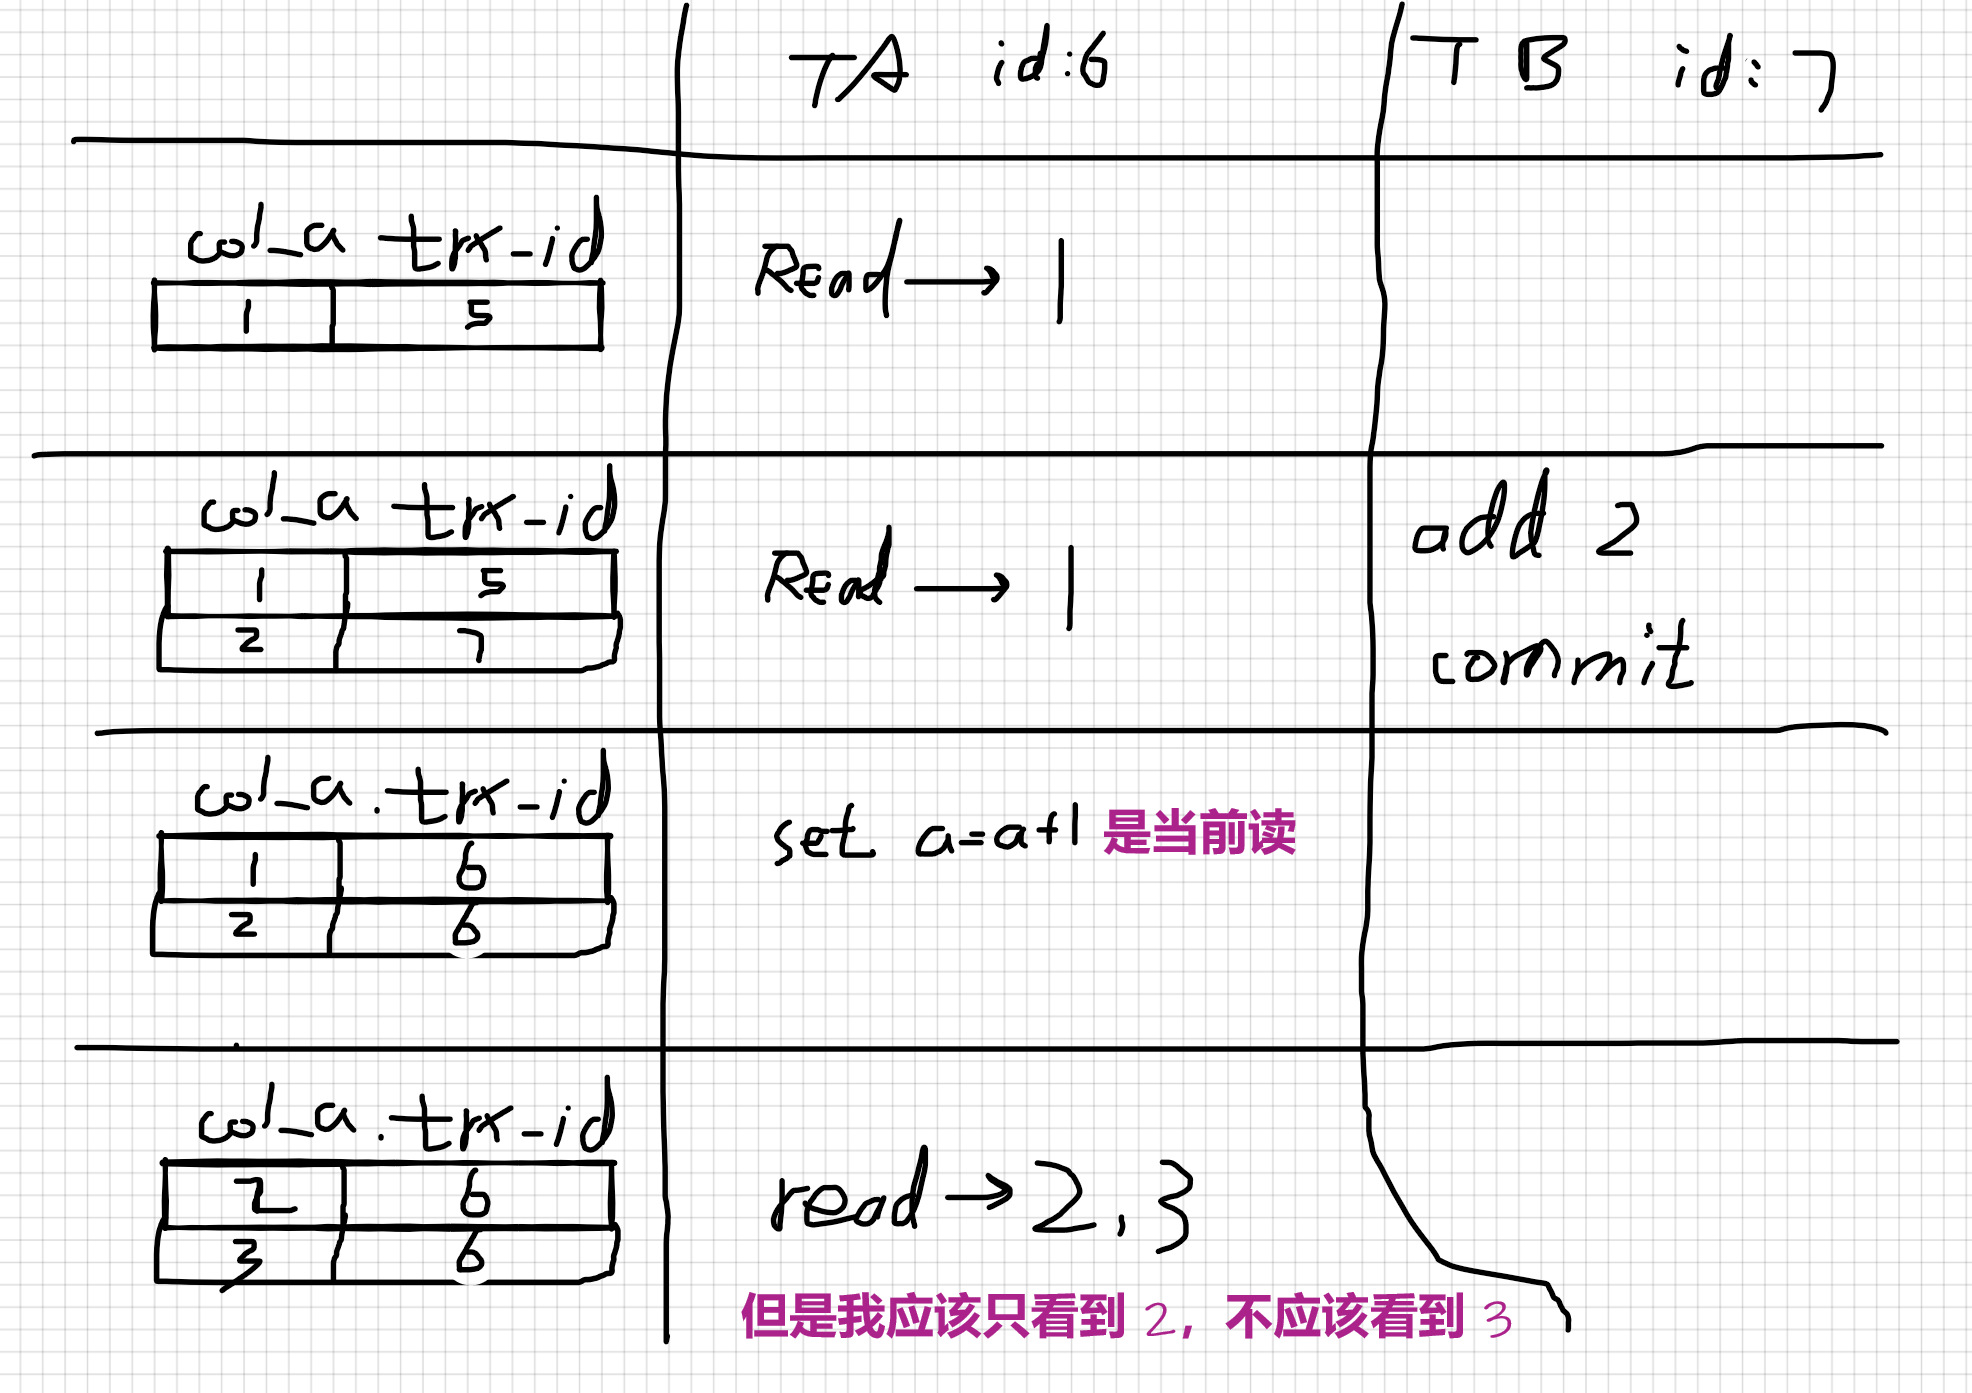 TA id:6 TB id:7
col_a trx-id
1 5
Read → 1
col_a trx-id
1 5
2 7
Read → 1
add 2
commit
col_a . trx-id
1 6
2 6
set a=a+1 是当前读
col_a . trx-id
2 6
3 6
read → 2,3
但是我应该只看到 2, 不应该看到 3